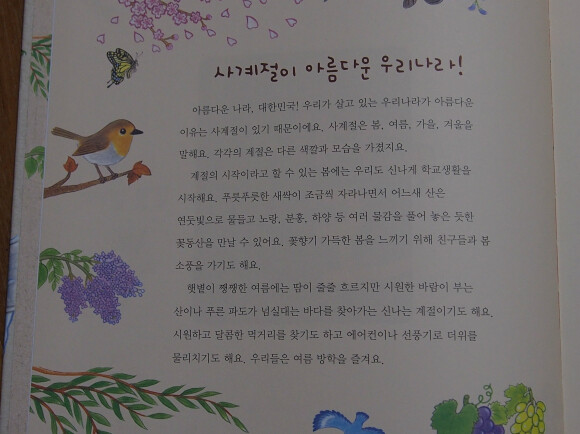 사계절이 아름다운 우리나라!
아름다운 나라, 대한민국! 우리가 살고 있는 우리나라가 아름다운
이유는 사계절이 있기 때문이에요. 사계절은 봄, 여름, 가을, 겨울을
말해요. 각각의 계절은 다른 색깔과 모습을 가졌지요.
계절의 시작이라고 할 수 있는 봄에는 우리도 신나게 학교생활을
시작해요. 푸릇푸릇한 새싹이 조금씩 자라나면서 어느새 산은
연둣빛으로 물들고 노랑, 분홍, 하양 등 여러 물감을 풀어 놓은 듯한
꽃동산을 만날 수 있어요. 꽃향기 가득한 봄을 느끼기 위해 친구들과 봄
소풍을 가기도 해요.
햇볕이 쨍쨍한 여름에는 땀이 줄줄 흐르지만 시원한 바람이 부는
산이나 푸른 파도가 넘실대는 바다를 찾아가는 신나는 계절이기도 해요.
시원하고 달콤한 먹거리를 찾기도 하고 에어컨이나 선풍기로 더위를
물리치기도 해요. 우리들은 여름 방학을 즐겨요.